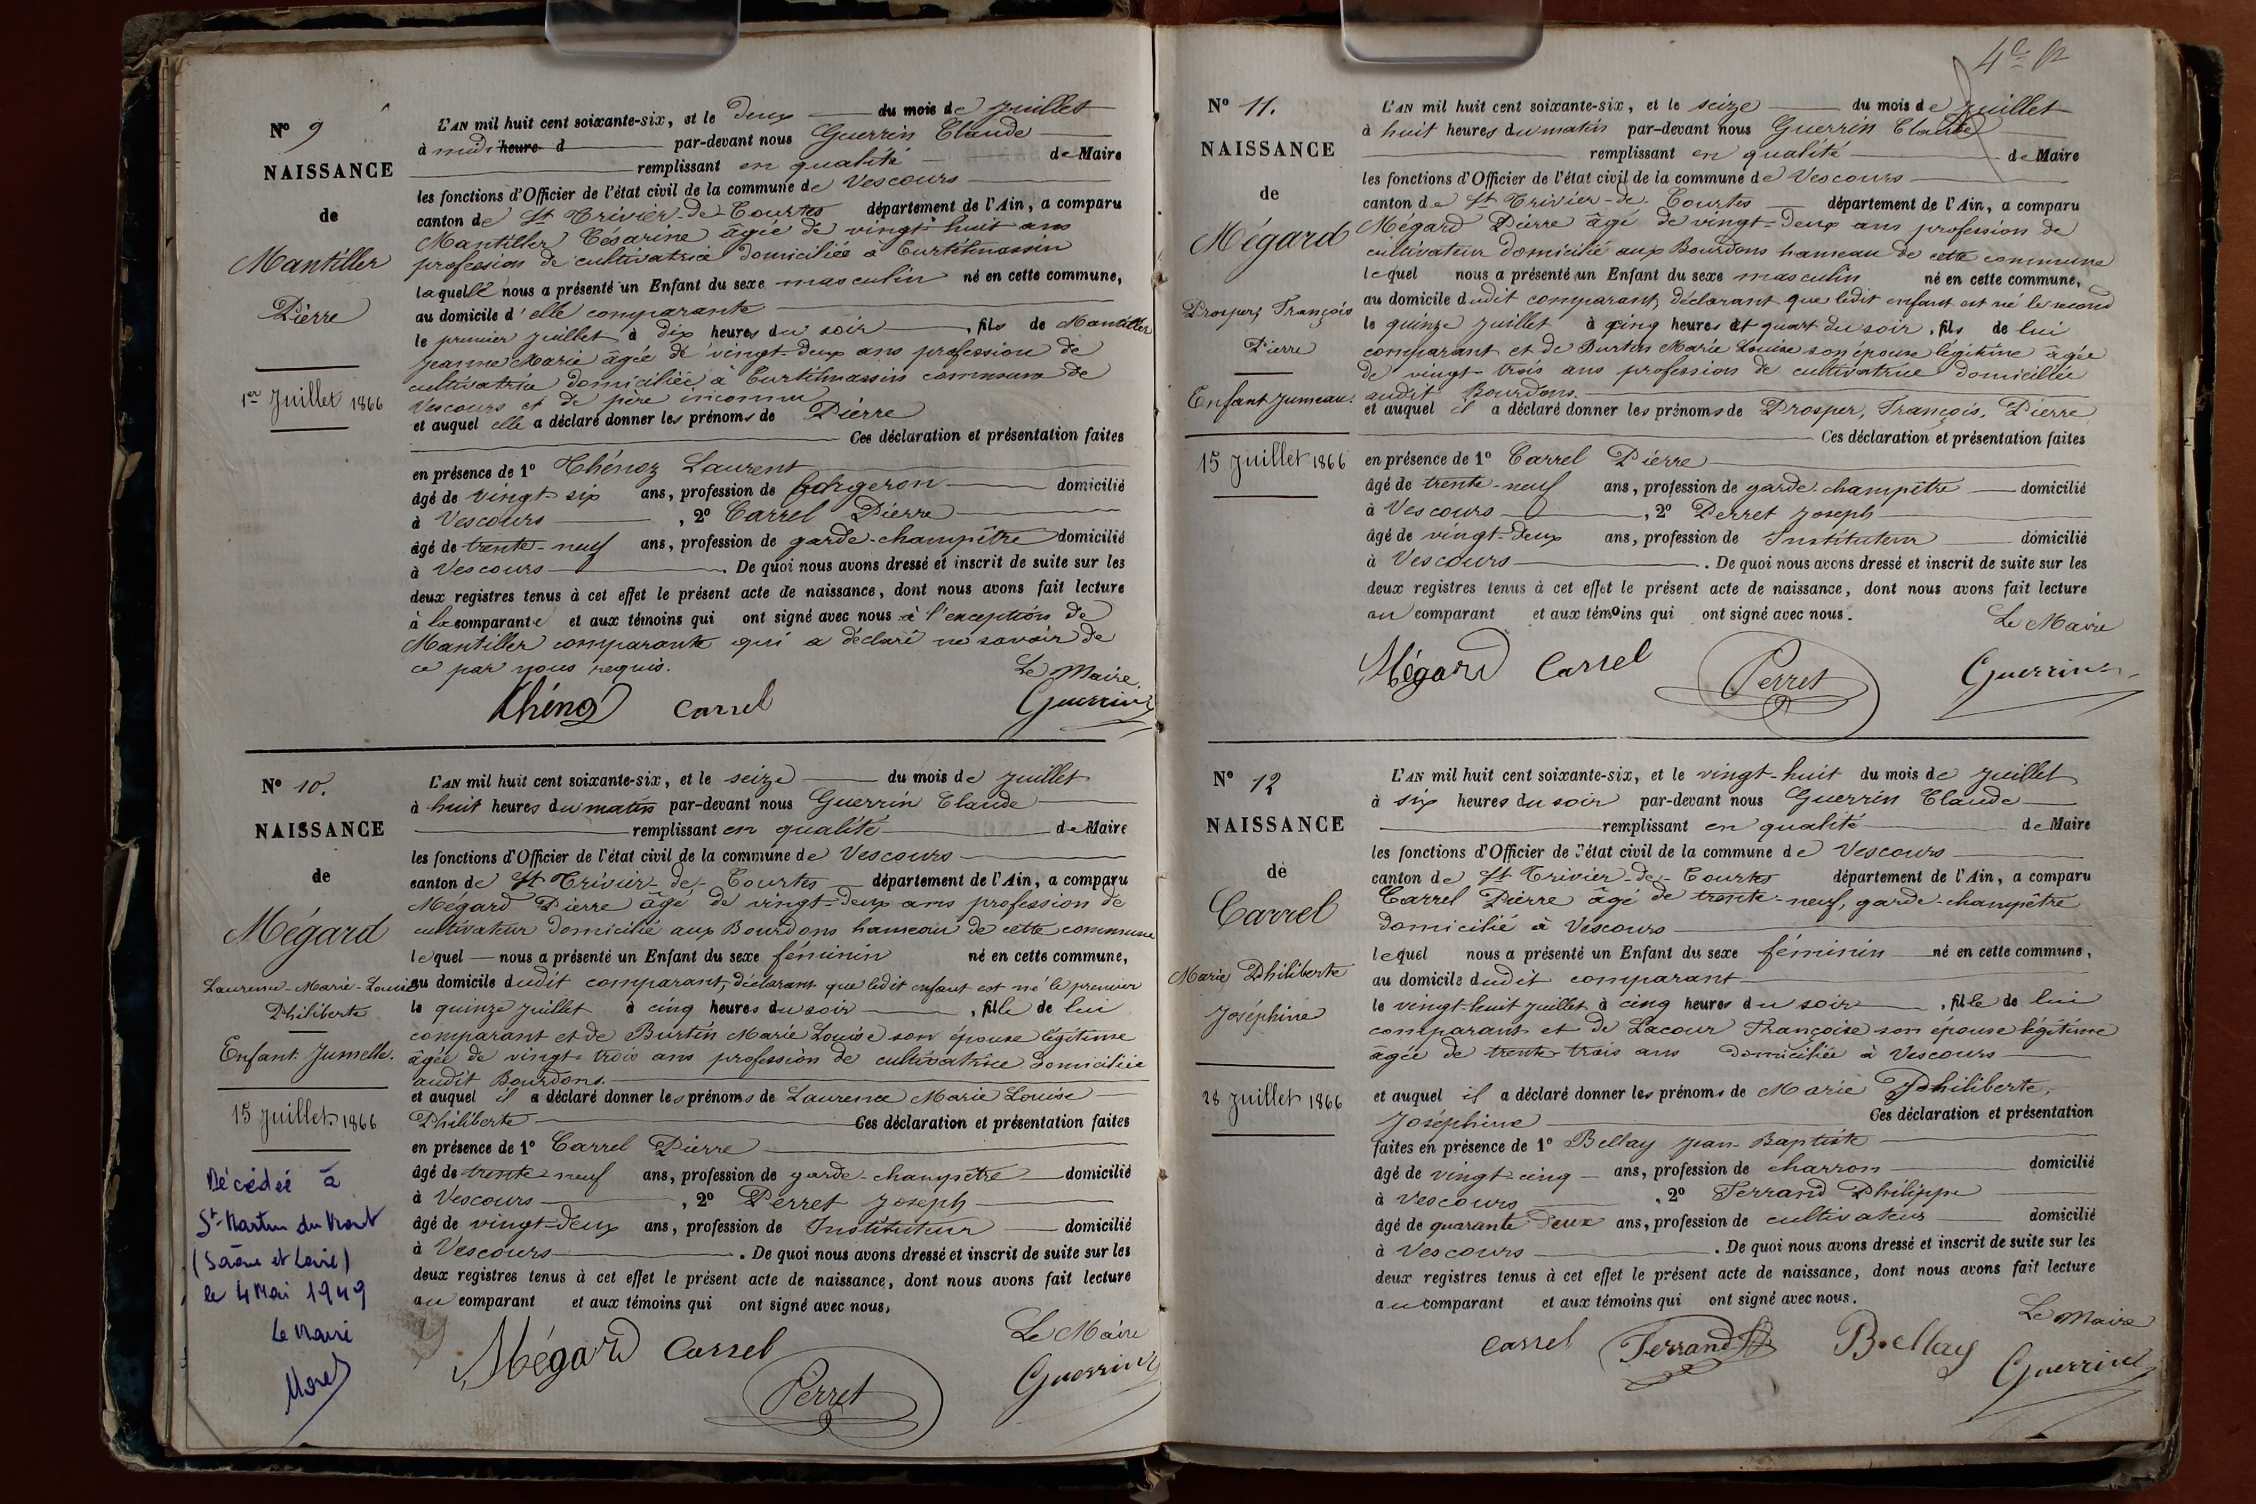 N° 9
NAISSANCE
de
Mantiller
Pierre
1er Juillet 1866
L'AN mil huit cent soixante-six, et le deux du mois de Juillet
à midi heure d par-devant nous Guerrin Claude
remplissant en qualité de Maire
les fonctions d'Officier de l'état civil de la commune de Vescours
canton de St Trivier-de-Courtes département de l'Ain, a comparu
Mantiller Césarine âgée de vingt-huit ans
profession de cultivatrice domiciliée à Curtilmassin
laquelle nous a présenté un Enfant du sexe masculin né en cette commune,
au domicile d'elle comparante
le premier juillet à dix heures du soir, fils de Mantiller
Jeanne Marie âgée de vingt-deux ans profession de
cultivatrice domiciliée à Curtilmassin commune de
Vescours et de père inconnu
et auquel elle a déclaré donner les prénoms de Pierre
Ces déclaration et présentation faites
en présence de 1° Thénoz Laurent
âgé de vingt-six ans, profession de forgeron domicilié
à Vescours, 2° Carrel Pierre
âgé de trente-neuf ans, profession de garde-champêtre domicilié
à Vescours. De quoi nous avons dressé et inscrit de suite sur les
deux registres tenus à cet effet le présent acte de naissance, dont nous avons fait lecture
à la comparante et aux témoins qui ont signé avec nous à l'exception de
Mantiller comparante qui a déclaré ne savoir de
ce par nous requis.
Le Maire.
Thénoz Carrel Guerrin
N° 10.
NAISSANCE
de
Mégard
Laurence-Marie-Louise
Philiberte
Enfant Jumelle.
15 Juillet 1866
Décédée à
St-Martin du Mont
(Saône et Loire)
le 4 Mai 1949
Le Maire
Morel
L'AN mil huit cent soixante-six, et le seize du mois de Juillet
à huit heures du matin par-devant nous Guerrin Claude
remplissant en qualité de Maire
les fonctions d'Officier de l'état civil de la commune de Vescours
canton de St Trivier-de-Courtes département de l'Ain, a comparu
Mégard Pierre âgé de vingt-deux ans profession de
cultivateur domicilié aux Bourdons hameau de cette commune
lequel nous a présenté un Enfant du sexe féminin né en cette commune,
au domicile dudit comparant, déclarant que ledit enfant est né le premier
le quinze juillet à cinq heures du soir, fille de lui
comparant et de Burtin Marie Louise son épouse légitime
âgée de vingt-trois ans profession de cultivatrice domiciliée
audit Bourdons.
et auquel il a déclaré donner les prénoms de Laurence Marie Louise
Philiberte Ces déclaration et présentation faites
en présence de 1° Carrel Pierre
âgé de trente-neuf ans, profession de garde-champêtre domicilié
à Vescours, 2° Perret Joseph
âgé de vingt-deux ans, profession de Instituteur domicilié
à Vescours. De quoi nous avons dressé et inscrit de suite sur les
deux registres tenus à cet effet le présent acte de naissance, dont nous avons fait lecture
au comparant et aux témoins qui ont signé avec nous,
Le Maire
Mégard Carrel Perret Guerrin
N° 11.
NAISSANCE
de
Mégard
Prosper, François
Pierre
Enfant Jumeau.
15 Juillet 1866
L'AN mil huit cent soixante-six, et le seize du mois de Juillet
à huit heures du matin par-devant nous Guerrin Claude
remplissant en qualité de Maire
les fonctions d'Officier de l'état civil de la commune de Vescours
canton de St Trivier-de-Courtes département de l'Ain, a comparu
Mégard Pierre âgé de vingt-deux ans profession de
cultivateur domicilié aux Bourdons hameau de cette commune
lequel nous a présenté un Enfant du sexe masculin né en cette commune,
au domicile dudit comparant, déclarant que ledit enfant est né le second
le quinze juillet à cinq heures et quart du soir, fils de lui
comparant et de Burtin Marie Louise son épouse légitime âgée
de vingt-trois ans profession de cultivatrice domiciliée
audit Bourdons.
et auquel il a déclaré donner les prénoms de Prosper, François, Pierre
Ces déclaration et présentation faites
en présence de 1° Carrel Pierre
âgé de trente-neuf ans, profession de garde-champêtre domicilié
à Vescours, 2° Perret Joseph
âgé de vingt-deux ans, profession de Instituteur domicilié
à Vescours. De quoi nous avons dressé et inscrit de suite sur les
deux registres tenus à cet effet le présent acte de naissance, dont nous avons fait lecture
au comparant et aux témoins qui ont signé avec nous.
Le Maire
Mégard Carrel Perret Guerrin
N° 12
NAISSANCE
de
Carrel
Marie Philiberte
Joséphine
28 Juillet 1866
L'AN mil huit cent soixante-six, et le vingt-huit du mois de Juillet
à six heures du soir par-devant nous Guerrin Claude
remplissant en qualité de Maire
les fonctions d'Officier de l'état civil de la commune de Vescours
canton de St Trivier-de-Courtes département de l'Ain, a comparu
Carrel Pierre âgé de trente-neuf, garde-champêtre
domicilié à Vescours
lequel nous a présenté un Enfant du sexe féminin né en cette commune,
au domicile dudit comparant
le vingt-huit juillet à cinq heures du soir, fille de lui
comparant et de Lacour Françoise son épouse légitime
âgée de trente-trois ans domiciliée à Vescours
et auquel il a déclaré donner les prénoms de Marie Philiberte,
Joséphine Ces déclaration et présentation
faites en présence de 1° Bellay Jean-Baptiste
âgé de vingt-cinq ans, profession de charron domicilié
à Vescours, 2° Ferrand Philippe
âgé de quarante deux ans, profession de cultivateur domicilié
à Vescours. De quoi nous avons dressé et inscrit de suite sur les
deux registres tenus à cet effet le présent acte de naissance, dont nous avons fait lecture
au comparant et aux témoins qui ont signé avec nous.
Le Maire
Carrel Ferrand B. Ellay Guerrin